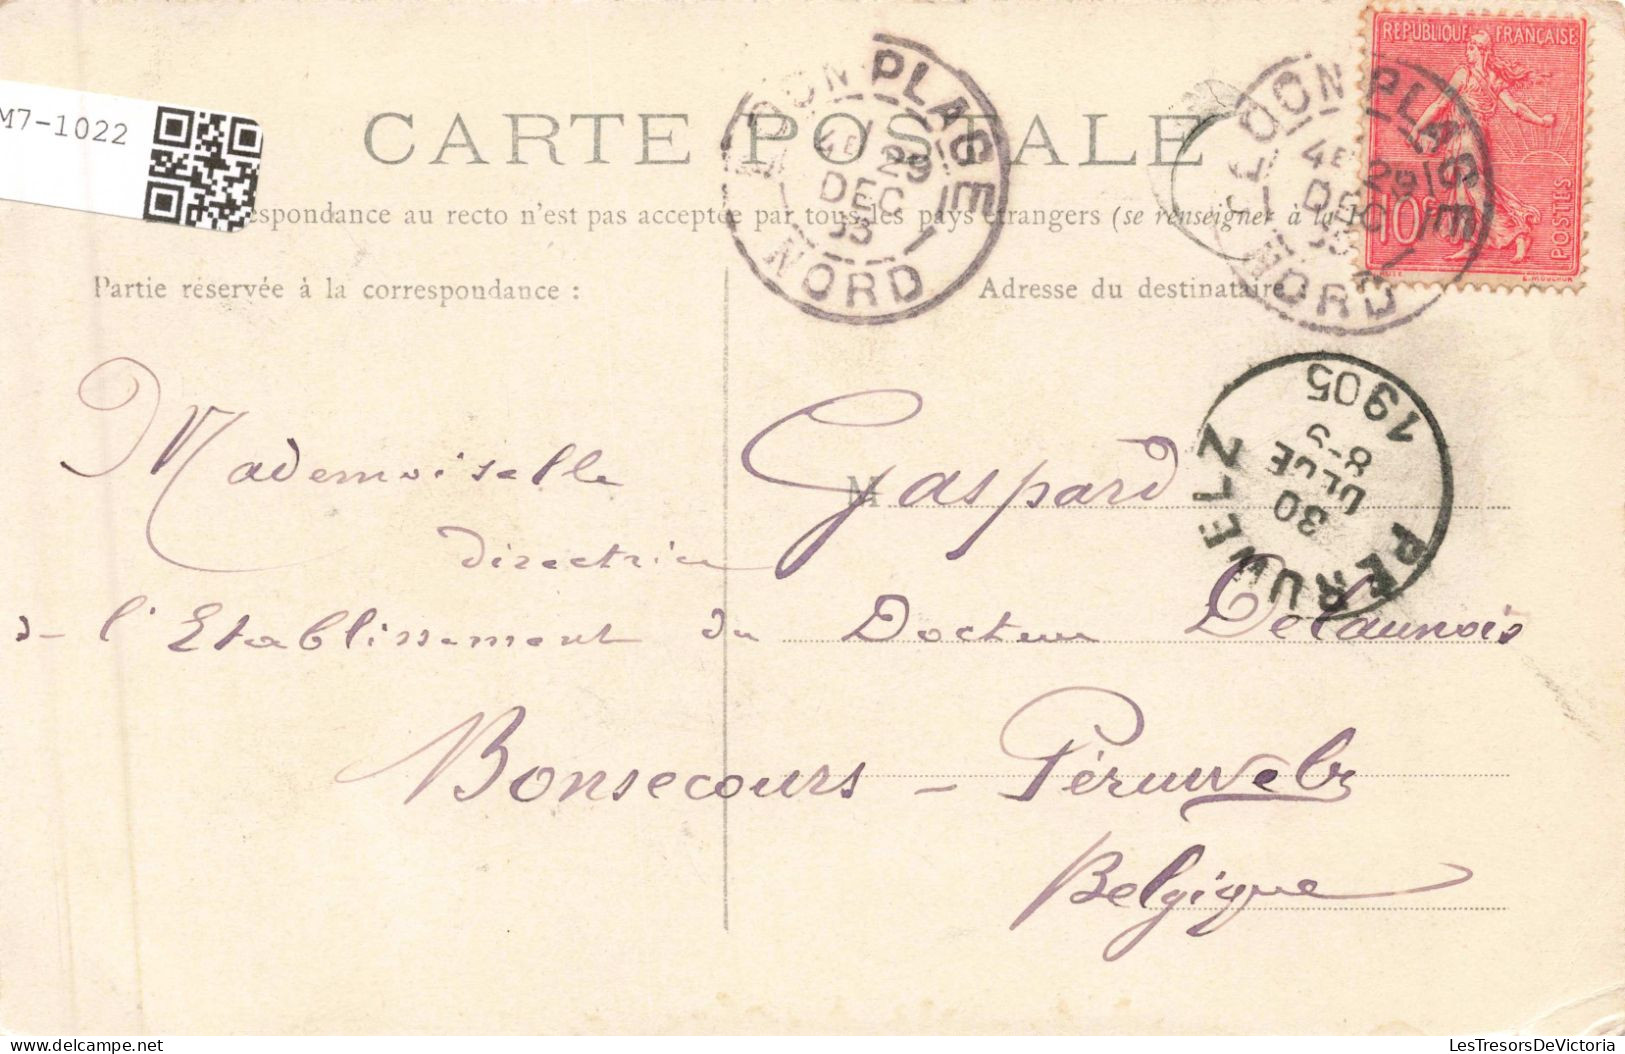 M7-1022
CARTE POSTALE
espondance au recto n'est pas acceptée par tous les pays étrangers (se renseigner à la
Partie réservée à la correspondance :
Adresse du destinataire :
REPUBLIQUE FRANÇAISE
10c
POSTES
PLAGE
4E 29
DEC
05
NORD
PLAGE
4E 29
DEC
05
NORD
1905
8-9
30
PERUWELZ
Mademoiselle M Gaspard
Directrice
de l'Etablissement du Docteur Delaunois
Bonsecours - Péruwelz
Belgique
LesTresorsDeVictoria